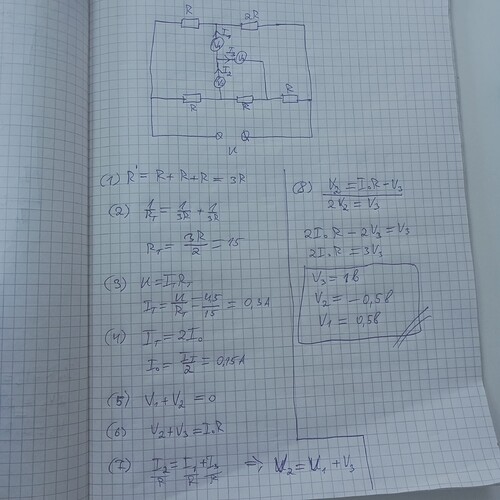 R 2R
I₁
V₁
I₃
V₃
I₂
V₂
R R R
U
(1) R' = R + R + R = 3R
(2) 1/R_T = 1/3R + 1/3R
R_T = 3R/2 = 15
(3) U = I_T R_T
I_T = U/R_T = 4,5/15 = 0,3A
(4) I_T = 2I₀
I₀ = I_T/2 = 0,15A
(5) V₁ + V₂ = 0
(6) V₂ + V₃ = I₀R
(7) I₂/R = I₁/R + I₃/R ⇒ V₂ = V₁ + V₃
(8) V₂ = I₀R - V₃
2V₂ = V₃
2I₀R - 2V₃ = V₃
2I₀R = 3V₃
V₃ = 1В
V₂ = -0,5В
V₁ = 0,5В